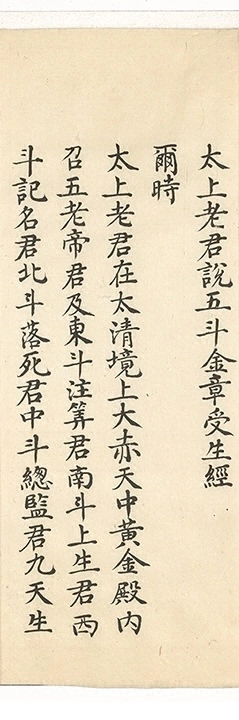 太上老君說五斗金章受生經
爾時
太上老君在太清境上大赤天中黃金殿內
召五老帝君及東斗注筭君南斗上生君西
斗記名君北斗落死君中斗總監君九天生